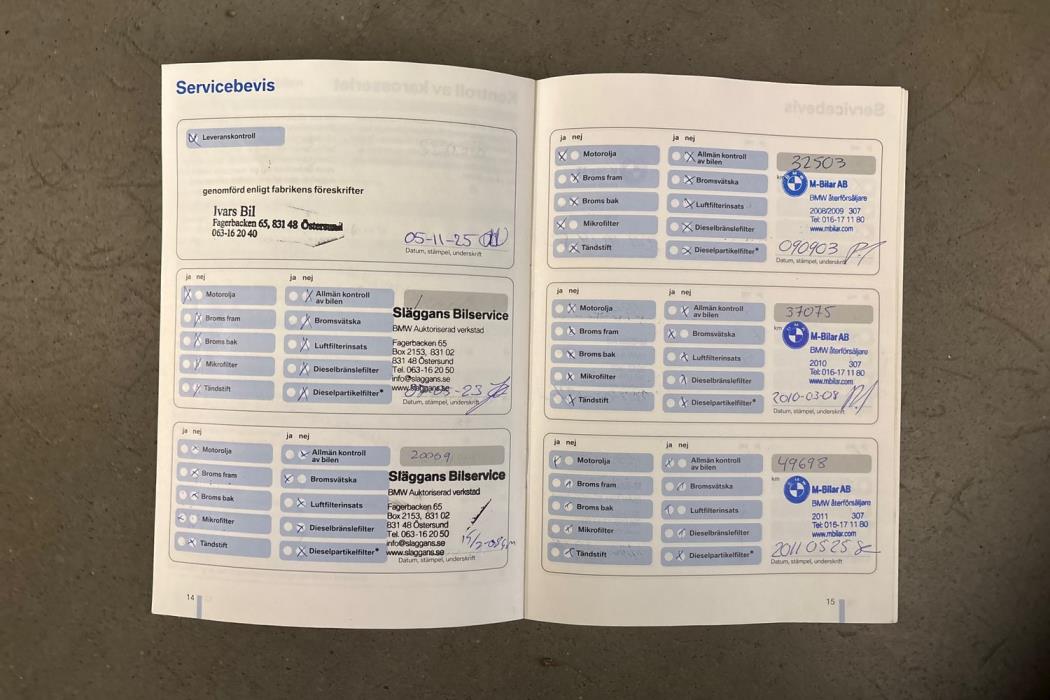 Servicebevis
Leveranskontroll
genomförd enligt fabrikens föreskrifter
Ivars Bil
Fagerbacken 65, 831 48 Östersund
063-16 20 40
05-11-25
Datum, stämpel, underskrift
ja nej
ja nej
Motorolja
Broms fram
Broms bak
Mikrofilter
Tändstift
Allmän kontroll
av bilen
Bromsvätska
Luftfilterinsats
Dieselbränslefilter
Dieselpartikelfilter*
Släggans Bilservice
BMW Auktoriserad verkstad
Fagerbacken 65
Box 2153, 831 02
831 48 Östersund
Tel. 063-16 20 50
info@slaggans.se
www.slaggans.se
05-23
Datum, stämpel, underskrift
ja nej
ja nej
Motorolja
Broms fram
Broms bak
Mikrofilter
Tändstift
Allmän kontroll
av bilen
Bromsvätska
Luftfilterinsats
Dieselbränslefilter
Dieselpartikelfilter*
20069
Släggans Bilservice
BMW Auktoriserad verkstad
Fagerbacken 65
Box 2153, 831 02
831 48 Östersund
Tel. 063-16 20 50
info@slaggans.se
www.slaggans.se
Datum, stämpel, underskrift
14
ja nej
ja nej
Motorolja
Broms fram
Broms bak
Mikrofilter
Tändstift
Allmän kontroll
av bilen
Bromsvätska
Luftfilterinsats
Dieselbränslefilter
Dieselpartikelfilter*
32503
km
M-Bilar AB
BMW återförsäljare
2008/2009 307
Tel: 016-17 11 80
www.mbilar.com
090903
Datum, stämpel, underskrift
ja nej
ja nej
Motorolja
Broms fram
Broms bak
Mikrofilter
Tändstift
Allmän kontroll
av bilen
Bromsvätska
Luftfilterinsats
Dieselbränslefilter
Dieselpartikelfilter*
37075
km
M-Bilar AB
BMW återförsäljare
2010 307
Tel: 016-17 11 80
www.mbilar.com
2010-03-08
Datum, stämpel, underskrift
ja nej
ja nej
Motorolja
Broms fram
Broms bak
Mikrofilter
Tändstift
Allmän kontroll
av bilen
Bromsvätska
Luftfilterinsats
Dieselbränslefilter
Dieselpartikelfilter*
49698
km
M-Bilar AB
BMW återförsäljare
2011 307
Tel: 016-17 11 80
www.mbilar.com
20110525
Datum, stämpel, underskrift
15